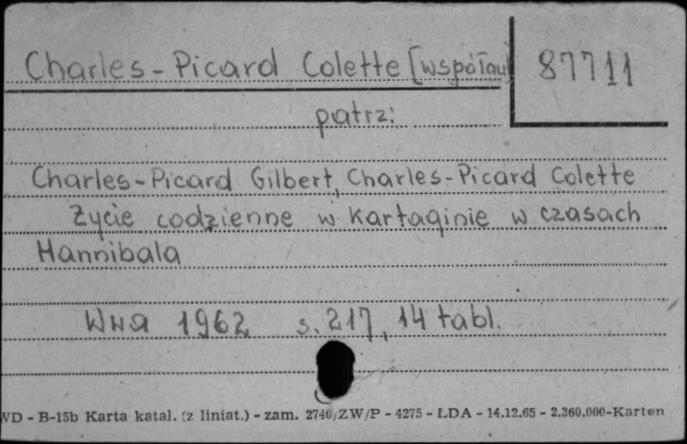 Charles-Picard Colette [współau]
87711
patrz:
Charles-Picard Gilbert, Charles-Picard Colette
Życie codzienne w Kartaginie w czasach
Hannibala
Wwa 1962 s. 217, 14 tabl.
WD - B-15b Karta katal. (z liniat.) - zam. 2740/ZW/P - 4275 - ŁDA - 14.12.65 - 2.360.000-Karton